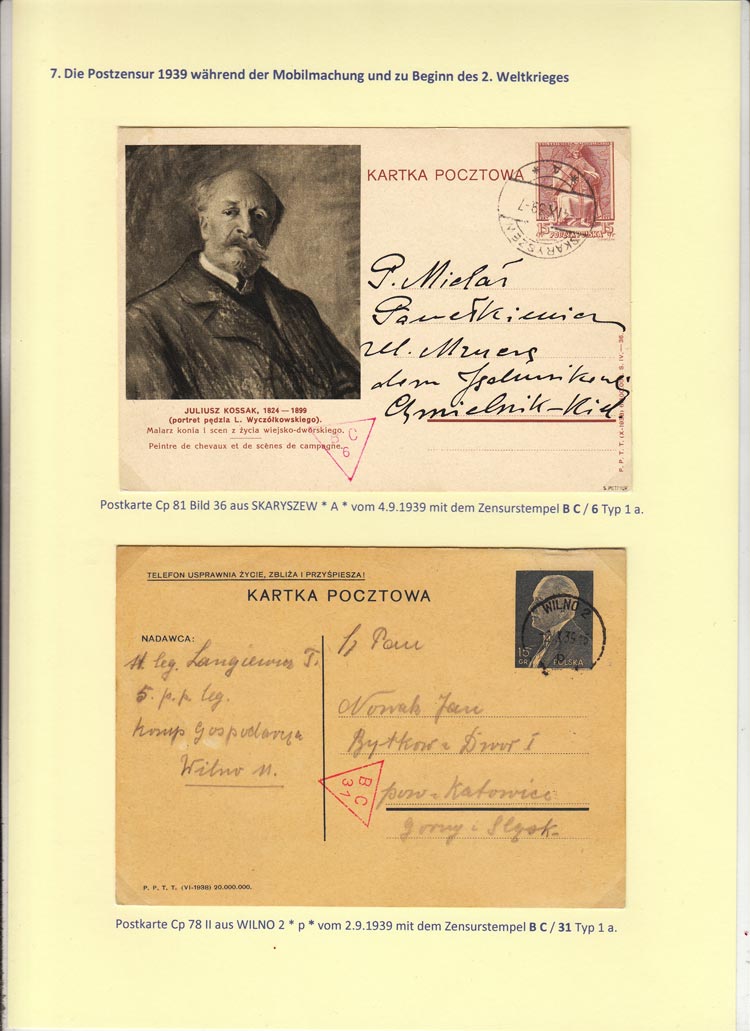 7. Die Postzensur 1939 während der Mobilmachung und zu Beginn des 2. Weltkrieges
KARTKA POCZTOWA
* A *
SKARYSZEW
15 15
P. Mietas
Pawełkiewicz
ul. Mrucza
dom
Chmielnik-Kiel
JULIUSZ KOSSAK, 1824 — 1899
(portret pędzla L. Wyczółkowskiego).
Malarz konia i scen z życia wiejsko-dworskiego.
Peintre de chevaux et de scènes de campagne.
B C
6
Postkarte Cp 81 Bild 36 aus SKARYSZEW * A * vom 4.9.1939 mit dem Zensurstempel B C / 6 Typ 1 a.
TELEFON USPRAWNIA ŻYCIE, ZBLIŻA I PRZYŚPIESZA!
KARTKA POCZTOWA
WILNO 2
15
GR. POLSKA
NADAWCA:
leg. Langiewicz T.
5. p.p. leg.
Komp Gospodarcza
Wilno 11.
Pan
Nowak Jan
Bytków Dwór I
pow. Katowice
Górny Śląsk
B C
31
P. P. T. T. (VI-1938) 20.000.000.
Postkarte Cp 78 II aus WILNO 2 * p * vom 2.9.1939 mit dem Zensurstempel B C / 31 Typ 1 a.